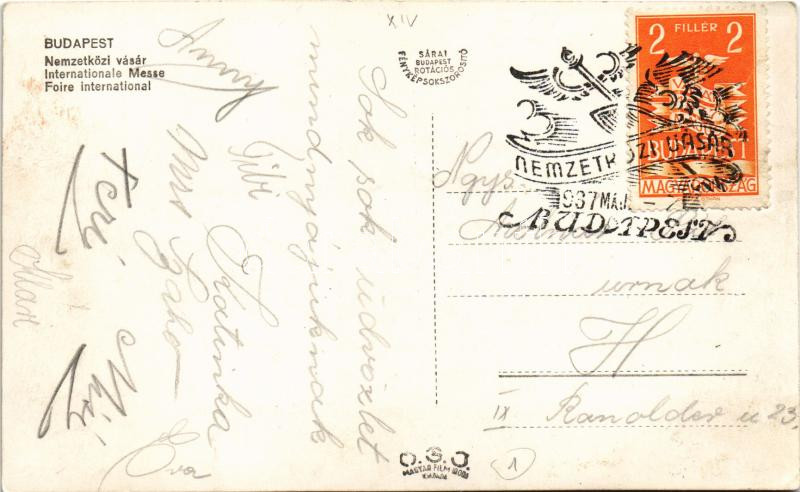 BUDAPEST
Nemzetközi vásár
Internationale Messe
Foire international
XIV
SÁRAI
BUDAPEST
ROTÁCIÓS
FÉNYKÉPSOKSZOROSÍTÓ
2 FILLÉR 2
BUDAPEST
MAGYARORSZÁG
NEMZETKÖZI VÁSÁR
937 MÁJ.
BUDAPEST
Sok sok üdvözlet
mindnyájuknak
Anny
Gibi
Mrs
Katinka
Teri
Éva
Max
Ngys.
urnak
H
IX Ranolder u 23
O.S.J.
MAGYAR FILM IRODA
KIADÁSA
1